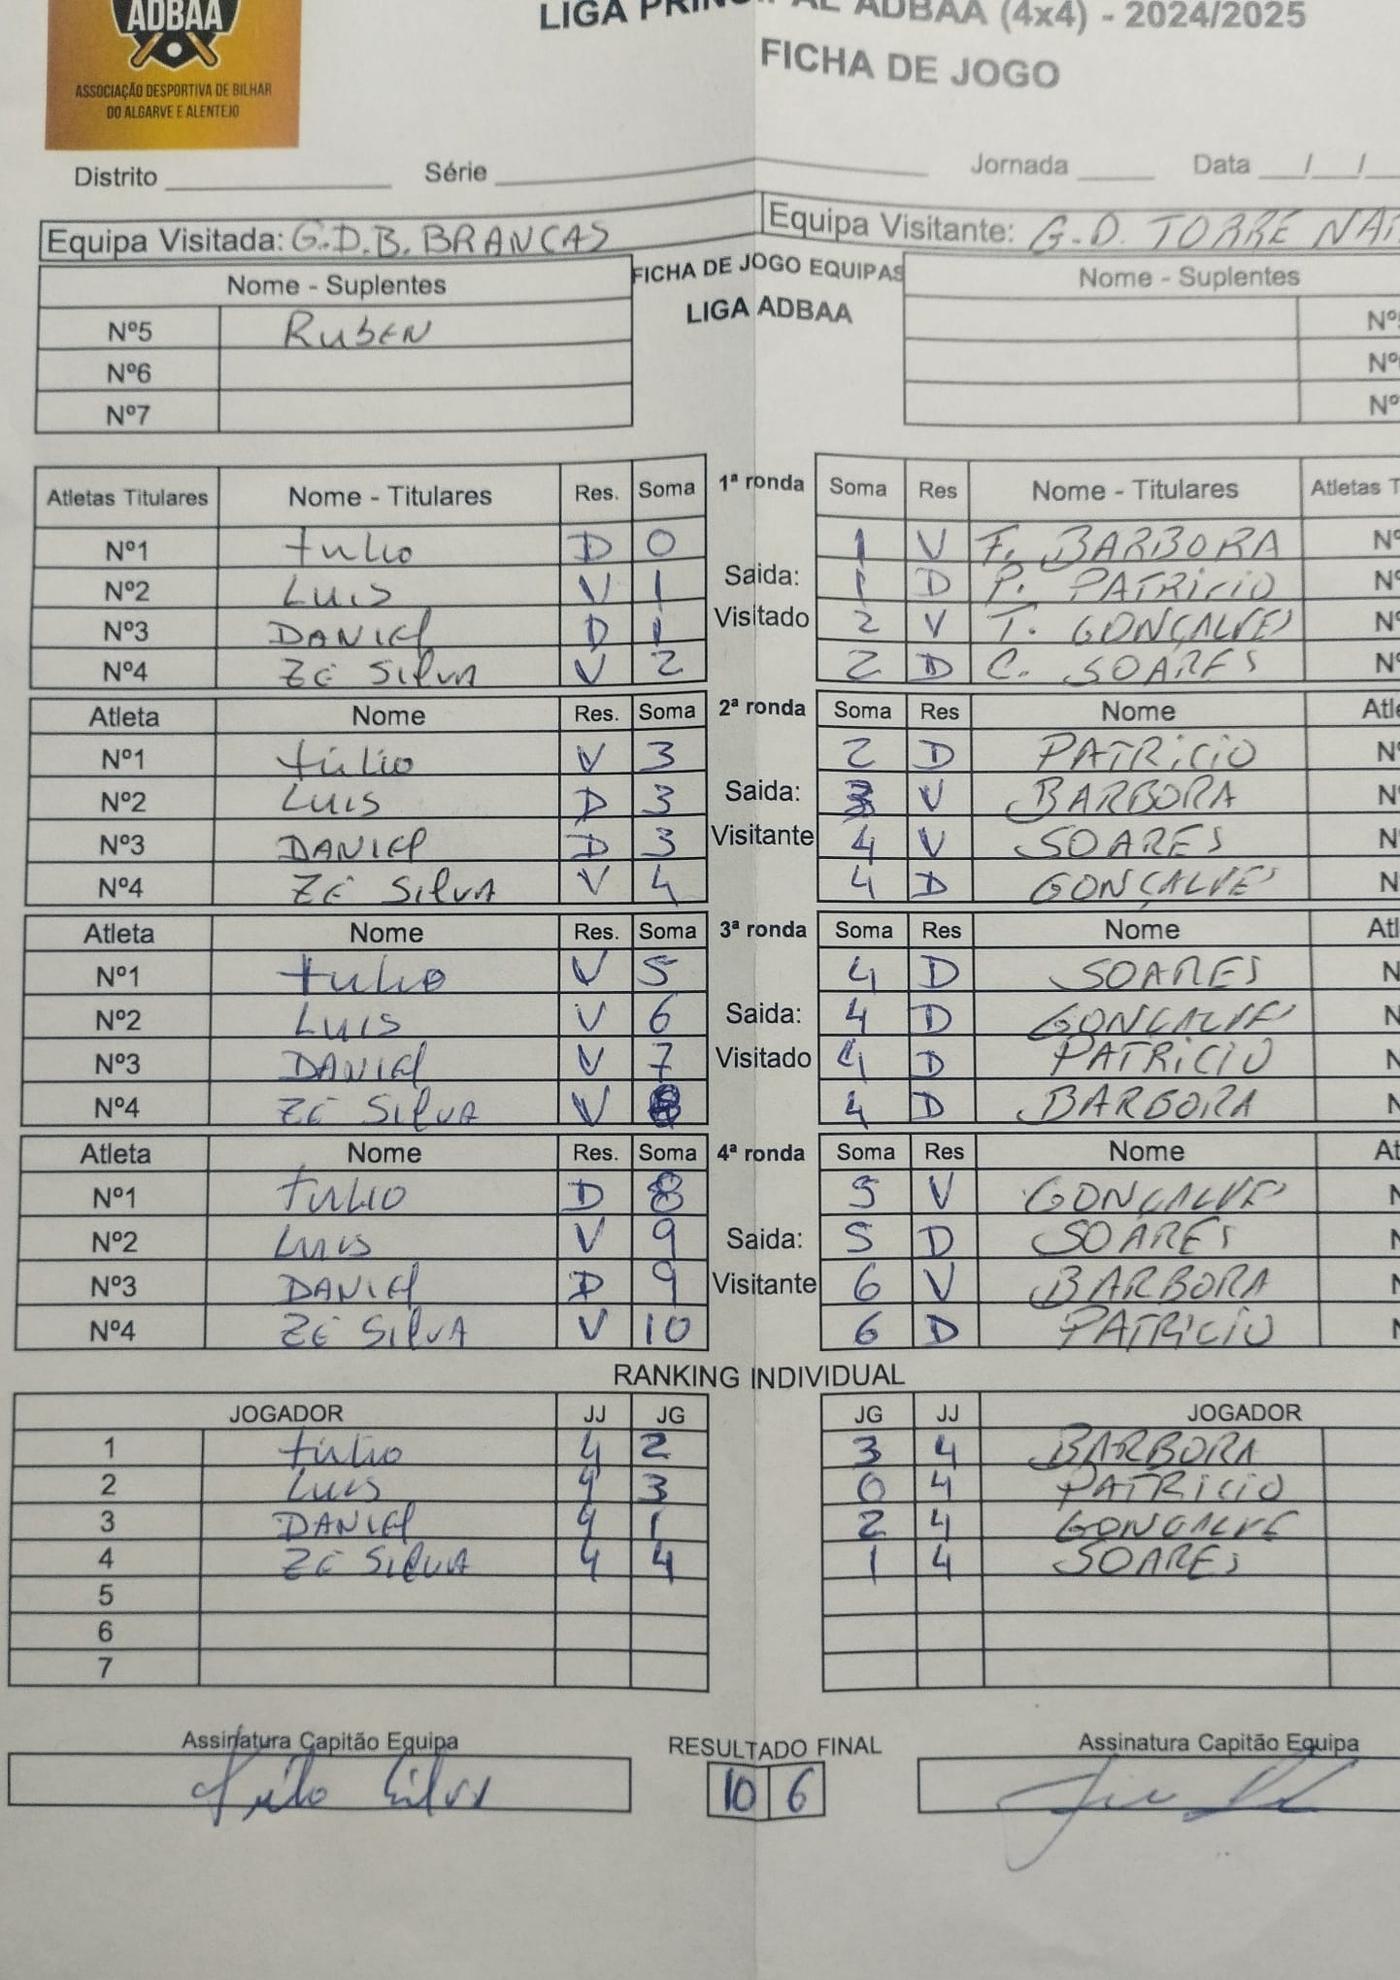 ADBAA
ASSOCIAÇÃO DESPORTIVA DE BILHAR
DO ALGARVE E ALENTEJO
LIGA PRINCIPAL ADBAA (4x4) - 2024/2025
FICHA DE JOGO
Distrito Série Jornada Data / /
Equipa Visitada: G.D.B. BRANCAS Equipa Visitante: G.D. TORRE
Nome - Suplentes FICHA DE JOGO EQUIPAS Nome - Suplentes
LIGA ADBAA
Nº5 RUBEN Nº
Nº6 Nº
Nº7 Nº
Atletas Titulares Nome - Titulares Res. Soma 1ª ronda Soma Res Nome - Titulares Atletas T
Nº1 tulio D 0 1 V F. BARBORA Nº
Nº2 LUIS V 1 Saida: 1 D P. PATRICIO Nº
Nº3 DANIEL D 1 Visitado 2 V T. GONÇALVES Nº
Nº4 ZÉ SILVA V 2 2 D C. SOARES Nº
Atleta Nome Res. Soma 2ª ronda Soma Res Nome Atle
Nº1 túlio V 3 2 D PATRICIO Nº
Nº2 LUIS D 3 Saida: 3 V BARBORA N
Nº3 DANIEL D 3 Visitante 4 V SOARES N
Nº4 ZÉ SILVA V 4 4 D GONÇALVES N
Atleta Nome Res. Soma 3ª ronda Soma Res Nome Atl
Nº1 tulio V 5 4 D SOARES N
Nº2 LUIS V 6 Saida: 4 D GONÇALVES N
Nº3 DANIEL V 7 Visitado 4 D PATRICIO N
Nº4 ZÉ SILVA V 8 4 D BARBORA N
Atleta Nome Res. Soma 4ª ronda Soma Res Nome At
Nº1 TULIO D 8 5 V GONÇALVES N
Nº2 LUIS V 9 Saida: 5 D SOARES N
Nº3 DANIEL D 9 Visitante 6 V BARBORA N
Nº4 ZÉ SILVA V 10 6 D PATRICIO N
RANKING INDIVIDUAL
JOGADOR JJ JG JG JJ JOGADOR
1 túlio 4 2 3 4 BARBORA
2 LUIS 4 3 0 4 PATRICIO
3 DANIEL 4 1 2 4 GONCALVE
4 ZÉ SILVA 4 4 1 4 SOARES
5
6
7
Assinatura Capitão Equipa RESULTADO FINAL Assinatura Capitão Equipa
10 6